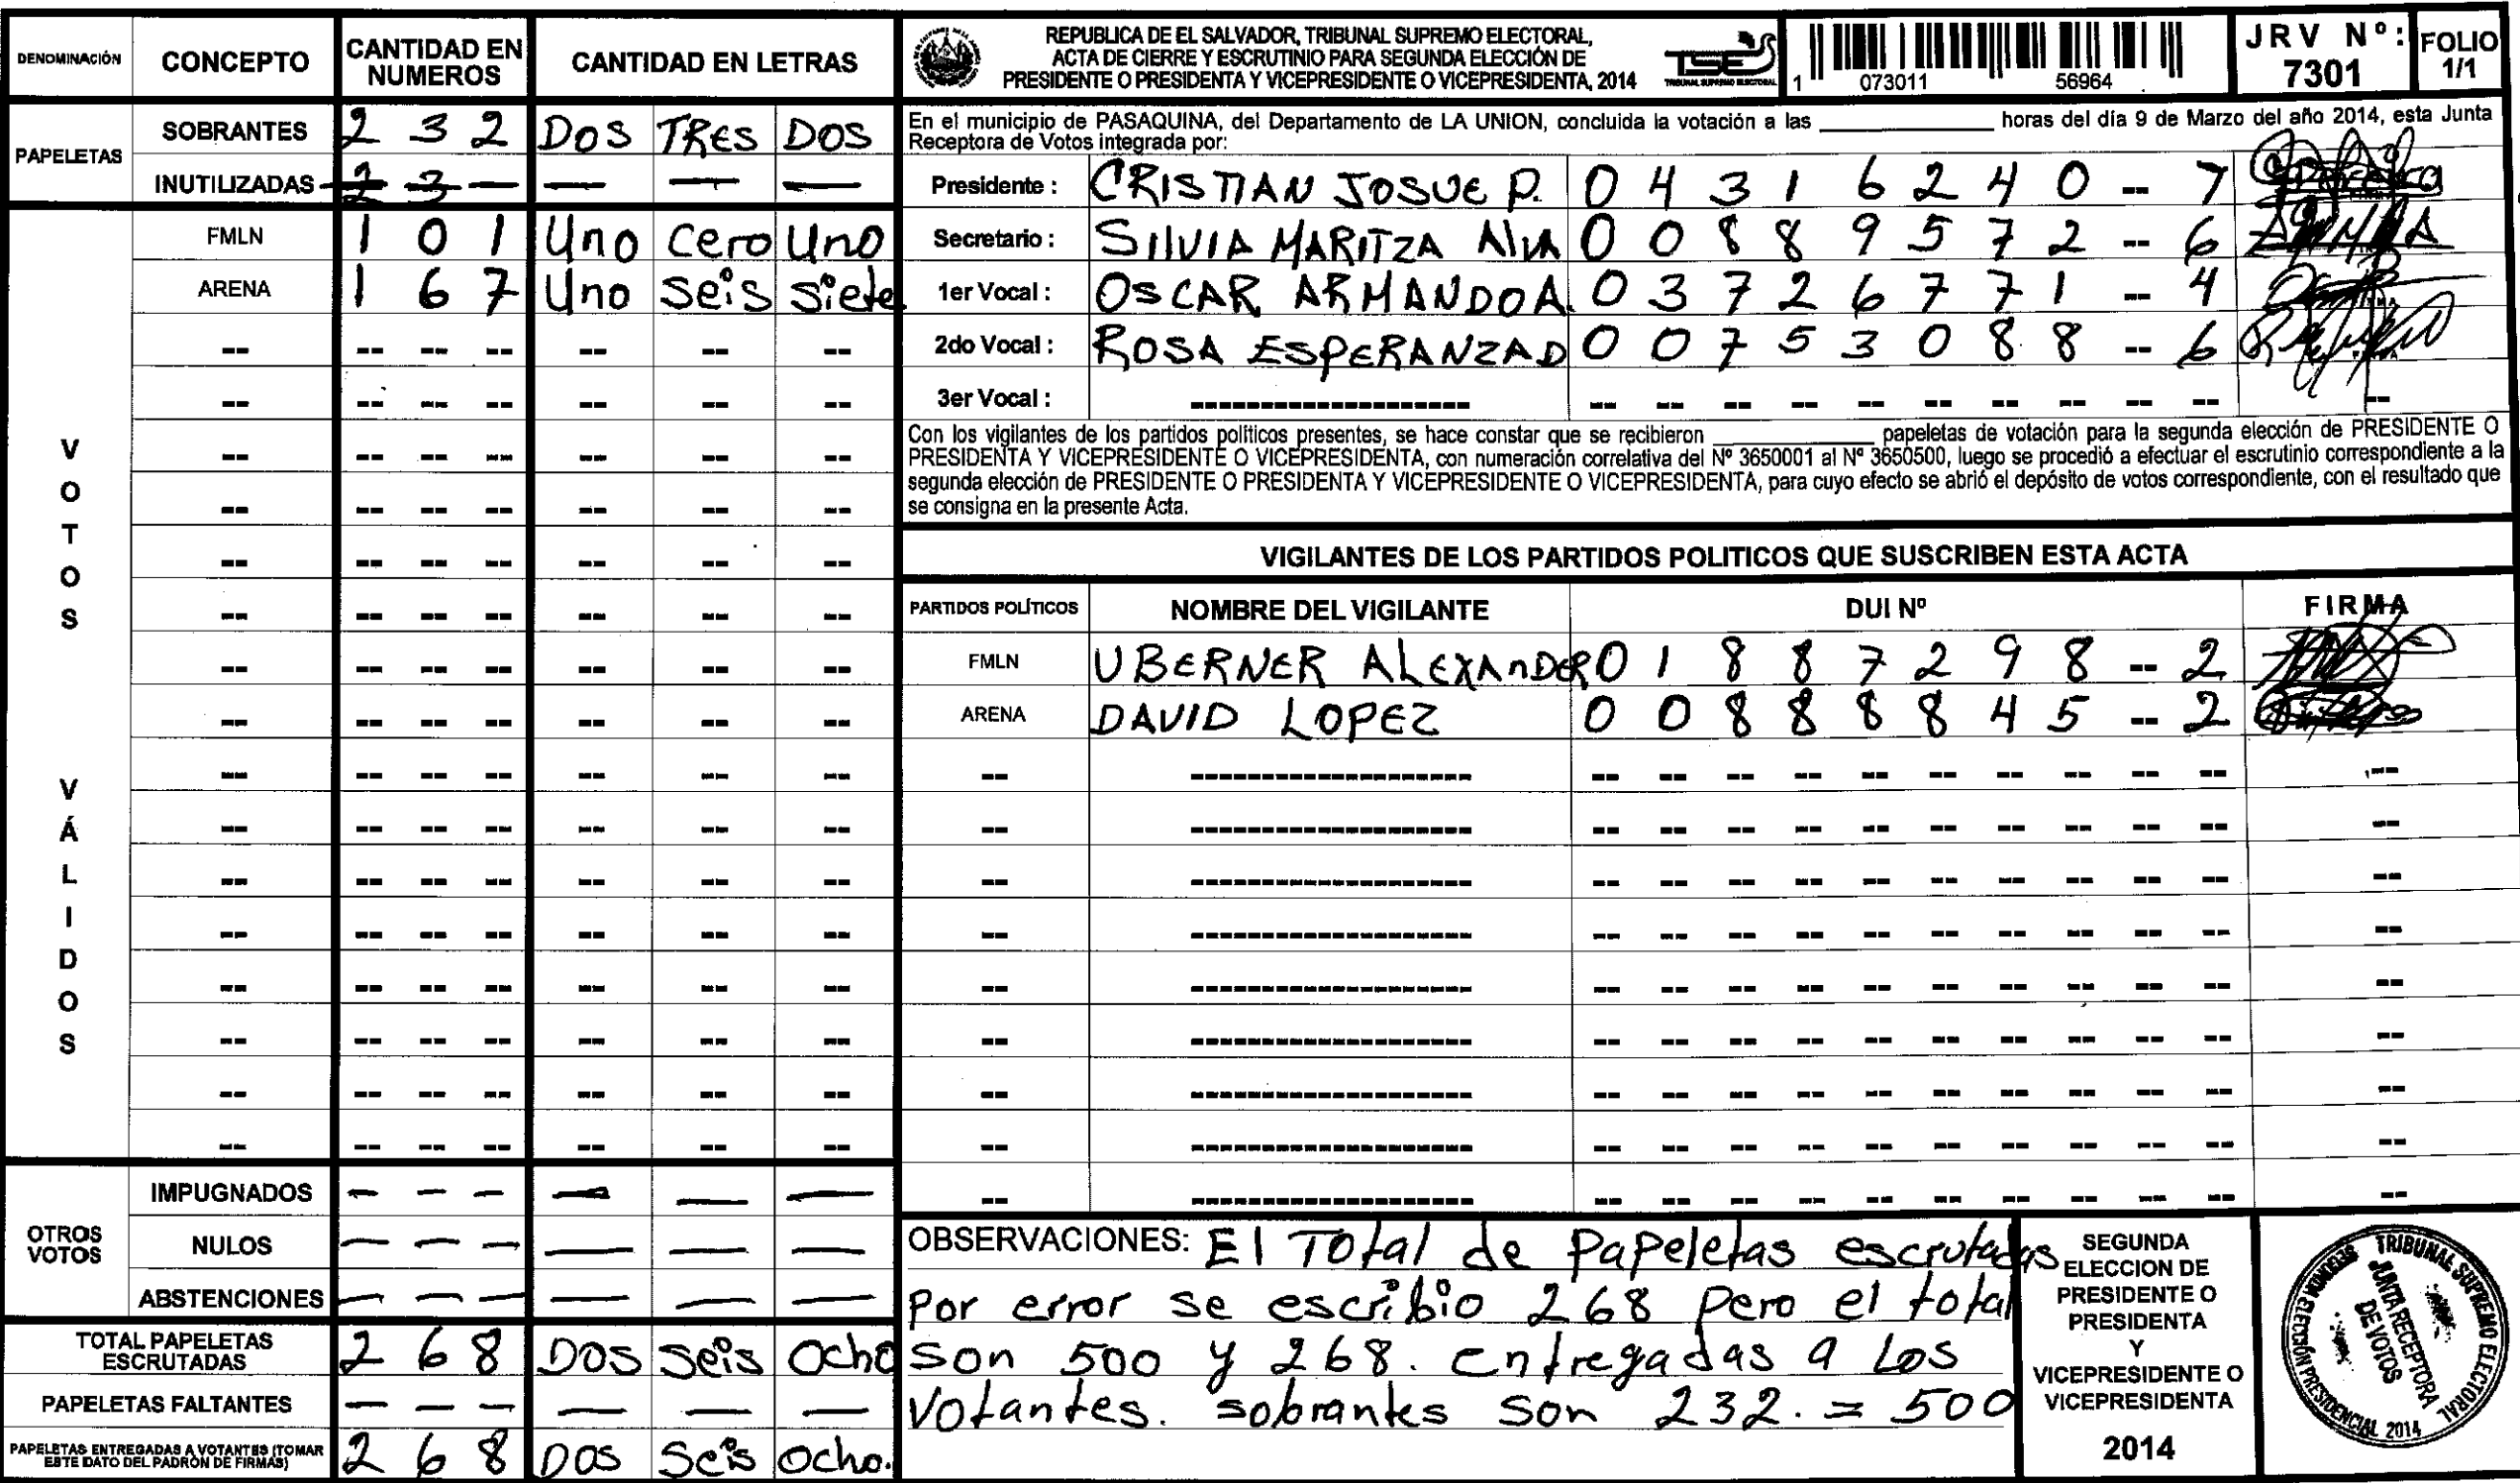 DENOMINACIÓN CONCEPTO CANTIDAD EN NUMEROS CANTIDAD EN LETRAS
PAPELETAS
SOBRANTES 2 3 2 DOS TRES DOS
INUTILIZADAS 2 3 — — — —
VOTOS VÁLIDOS
FMLN 1 0 1 Uno Cero Uno
ARENA 1 6 7 Uno Seis Siete.
OTROS VOTOS
IMPUGNADOS — — — — — —
NULOS — — — — — —
ABSTENCIONES — — — — — —
TOTAL PAPELETAS ESCRUTADAS 2 6 8 DOS Seis Ocho
PAPELETAS FALTANTES — — — — — —
PAPELETAS ENTREGADAS A VOTANTES (TOMAR ESTE DATO DEL PADRÓN DE FIRMAS) 2 6 8 DOS Seis Ocho.
REPUBLICA DE EL SALVADOR, TRIBUNAL SUPREMO ELECTORAL,
ACTA DE CIERRE Y ESCRUTINIO PARA SEGUNDA ELECCIÓN DE
PRESIDENTE O PRESIDENTA Y VICEPRESIDENTE O VICEPRESIDENTA, 2014
TSE
TRIBUNAL SUPREMO ELECTORAL
1 073011 56964
JRV Nº: 7301
FOLIO 1/1
En el municipio de PASAQUINA, del Departamento de LA UNION, concluida la votación a las ____________ horas del día 9 de Marzo del año 2014, esta Junta
Receptora de Votos integrada por:
Presidente : CRISTIAN JOSUE P. 0 4 3 1 6 2 4 0 -- 7
Secretario : SILVIA MARITZA 0 0 8 8 9 5 7 2 -- 6
1er Vocal : OSCAR ARMANDO A. 0 3 7 2 6 7 7 1 -- 4
2do Vocal : ROSA ESPERANZA D 0 0 7 5 3 0 8 8 -- 6
3er Vocal : -------------------- -- -- -- -- -- -- -- -- -- -- --
Con los vigilantes de los partidos políticos presentes, se hace constar que se recibieron ____________ papeletas de votación para la segunda elección de PRESIDENTE O
PRESIDENTA Y VICEPRESIDENTE O VICEPRESIDENTA, con numeración correlativa del Nº 3650001 al Nº 3650500, luego se procedió a efectuar el escrutinio correspondiente a la
segunda elección de PRESIDENTE O PRESIDENTA Y VICEPRESIDENTE O VICEPRESIDENTA, para cuyo efecto se abrió el depósito de votos correspondiente, con el resultado que
se consigna en la presente Acta.
VIGILANTES DE LOS PARTIDOS POLITICOS QUE SUSCRIBEN ESTA ACTA
PARTIDOS POLÍTICOS NOMBRE DEL VIGILANTE DUI Nº FIRMA
FMLN UBERNER ALEXANDER 0 1 8 8 7 2 9 8 -- 2
ARENA DAVID LOPEZ 0 0 8 8 8 8 4 5 -- 2
OBSERVACIONES: El Total de Papeletas escrutadas
Por error se escribio 268 Pero el total
Son 500 y 268. entregadas a Los
Votantes. sobrantes Son 232. = 500
SEGUNDA
ELECCION DE
PRESIDENTE O
PRESIDENTA
Y
VICEPRESIDENTE O
VICEPRESIDENTA
2014
TRIBUNAL SUPREMO ELECTORAL
JUNTA RECEPTORA
DE VOTOS
SEGUNDA ELECCIÓN PRESIDENCIAL 2014